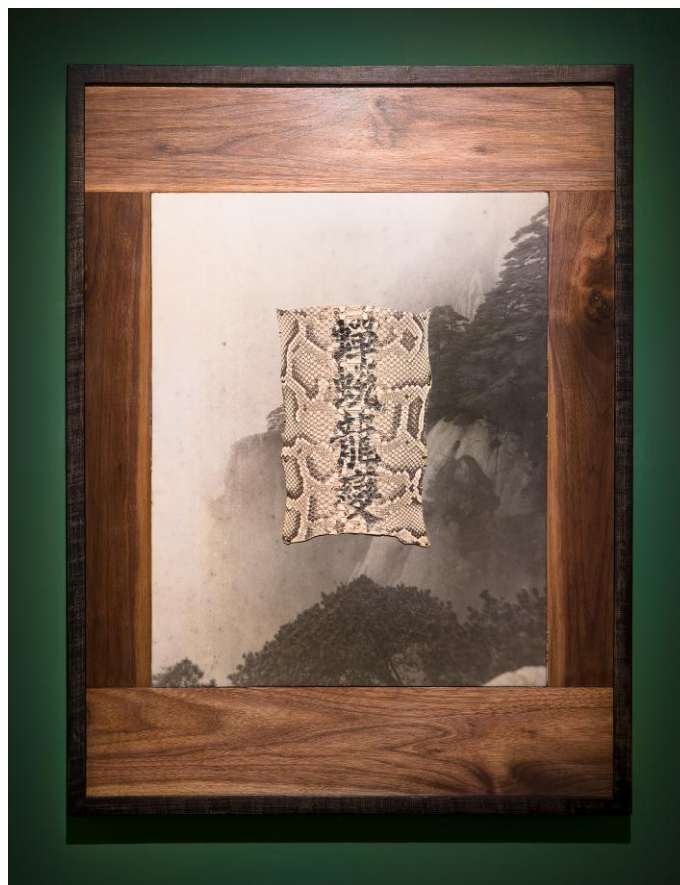 蟬蛻龍變